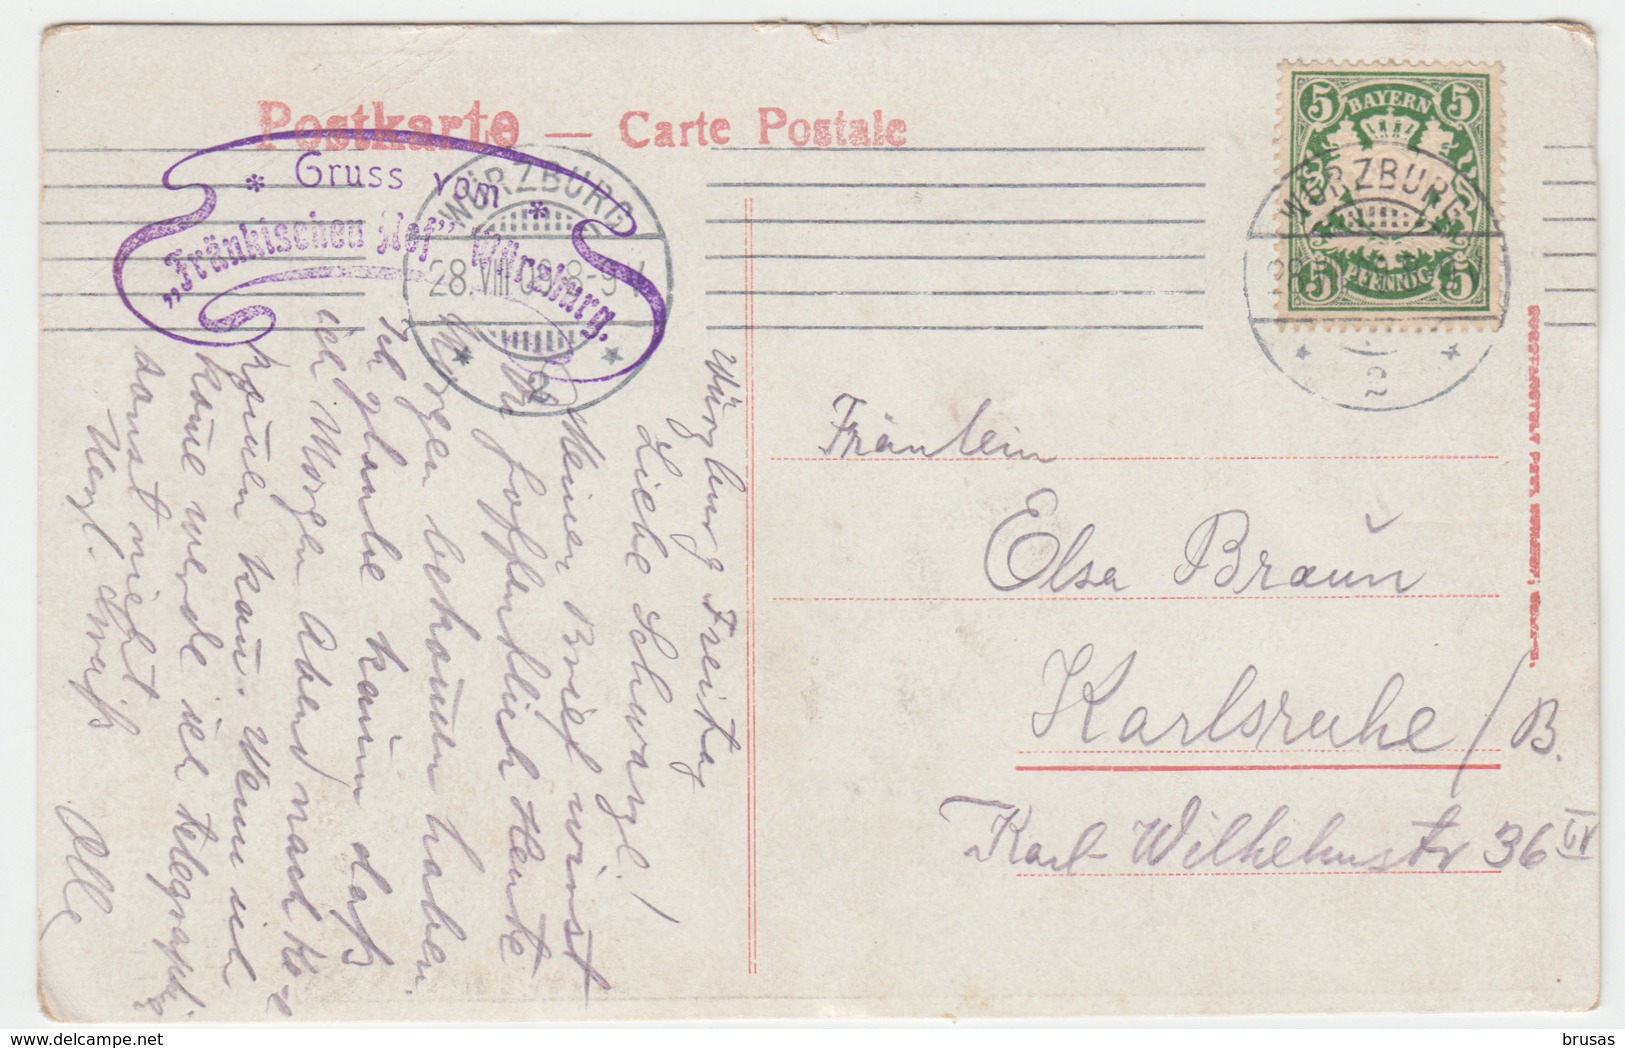 Postkarte — Carte Postale
* Gruss vom *
„Fränkischen Hof" Würzburg.
WÜRZBURG
28.VIII 09. 8-9 V
* 2 *
5 BAYERN 5
5 PFENNIG 5
WÜRZBURG
* 2 *
Würzburg Freitag
Liebe Schwargl!
Meinen Brief wirst
Du hoffentlich Heute
Morgen bekommen haben.
Ich glaube kaum daß
ich Morgen Abend nach
kommen kann. Wenn ich
komme werde ich telegraph.
sonst nicht
Herzl.
Fräulein
Elsa Braun
Karlsruhe / B.
Karl-Wilhelmstr 36 IV
brusas